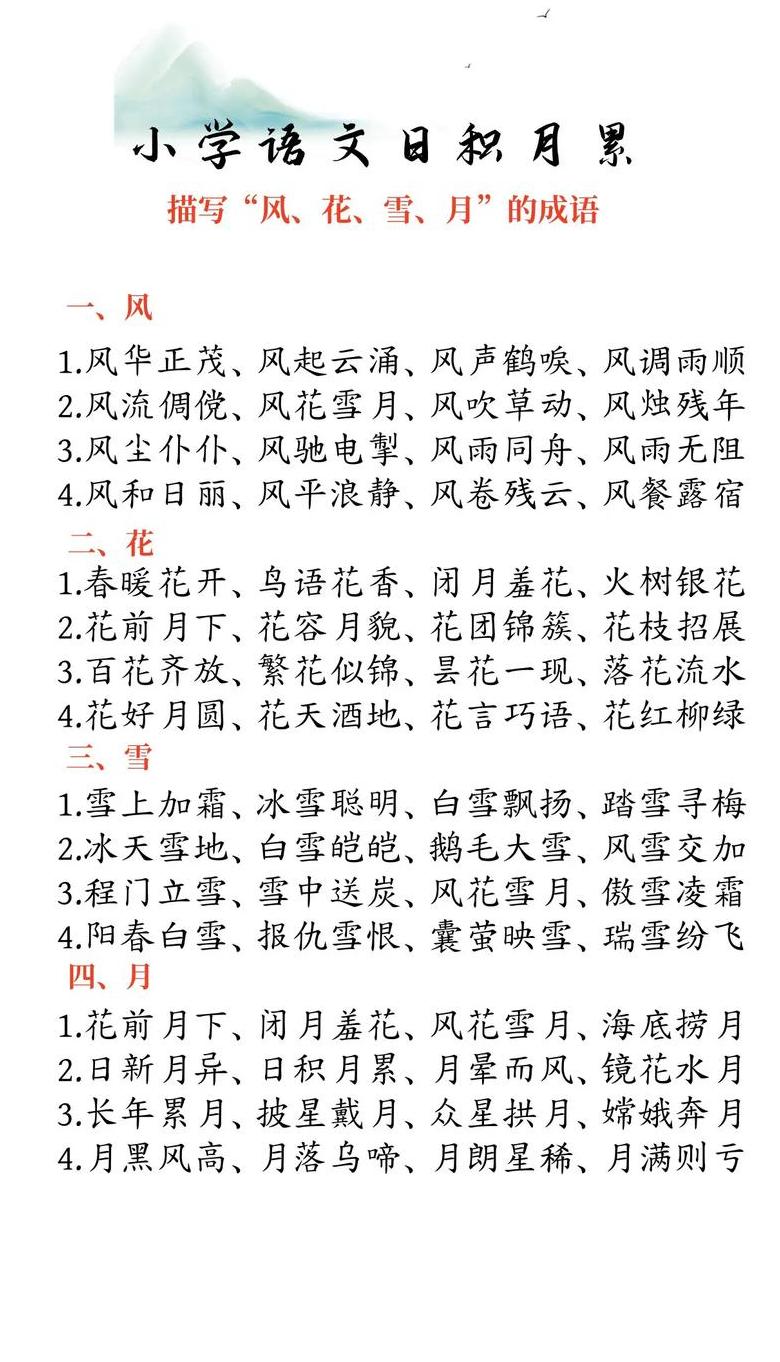 小学语文日积月累
描写“风、花、雪、月”的成语
一、风
1.风华正茂、风起云涌、风声鹤唳、风调雨顺
2.风流倜傥、风花雪月、风吹草动、风烛残年
3.风尘仆仆、风驰电掣、风雨同舟、风雨无阻
4.风和日丽、风平浪静、风卷残云、风餐露宿
二、花
1.春暖花开、鸟语花香、闭月羞花、火树银花
2.花前月下、花容月貌、花团锦簇、花枝招展
3.百花齐放、繁花似锦、昙花一现、落花流水
4.花好月圆、花天酒地、花言巧语、花红柳绿
三、雪
1.雪上加霜、冰雪聪明、白雪飘扬、踏雪寻梅
2.冰天雪地、白雪皑皑、鹅毛大雪、风雪交加
3.程门立雪、雪中送炭、风花雪月、傲雪凌霜
4.阳春白雪、报仇雪恨、囊萤映雪、瑞雪纷飞
四、月
1.花前月下、闭月羞花、风花雪月、海底捞月
2.日新月异、日积月累、月晕而风、镜花水月
3.长年累月、披星戴月、众星拱月、嫦娥奔月
4.月黑风高、月落乌啼、月朗星稀、月满则亏